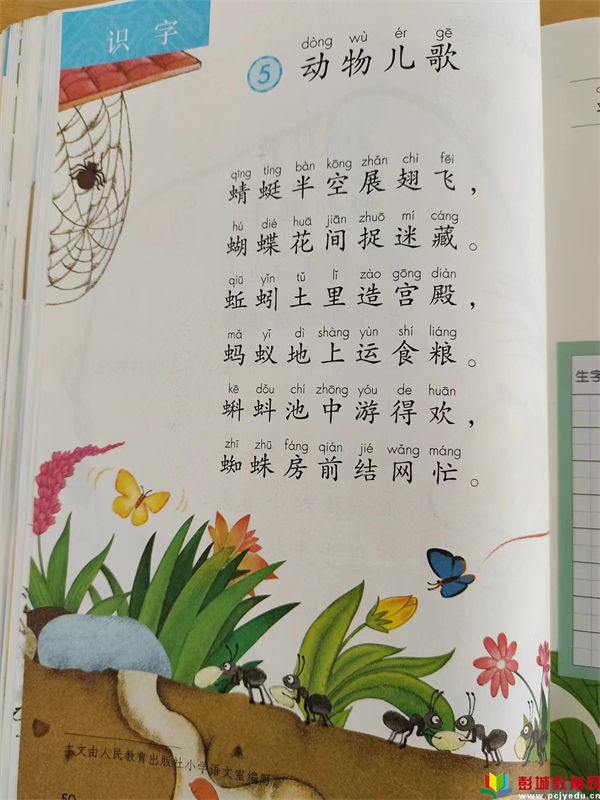 识字
dòng wù ér gē
⑤ 动物儿歌
qīng tíng bàn kōng zhǎn chì fēi
蜻蜓半空展翅飞，
hú dié huā jiān zhuō mí cáng
蝴蝶花间捉迷藏。
qiū yǐn tǔ lǐ zào gōng diàn
蚯蚓土里造宫殿，
mǎ yǐ dì shàng yùn shí liáng
蚂蚁地上运食粮。
kē dǒu chí zhōng yóu de huān
蝌蚪池中游得欢，
zhī zhū fáng qián jié wǎng máng
蜘蛛房前结网忙。
生字
本文由人民教育出版社小学语文室编写
50
彭城教育网
www.pcjyedu.cn